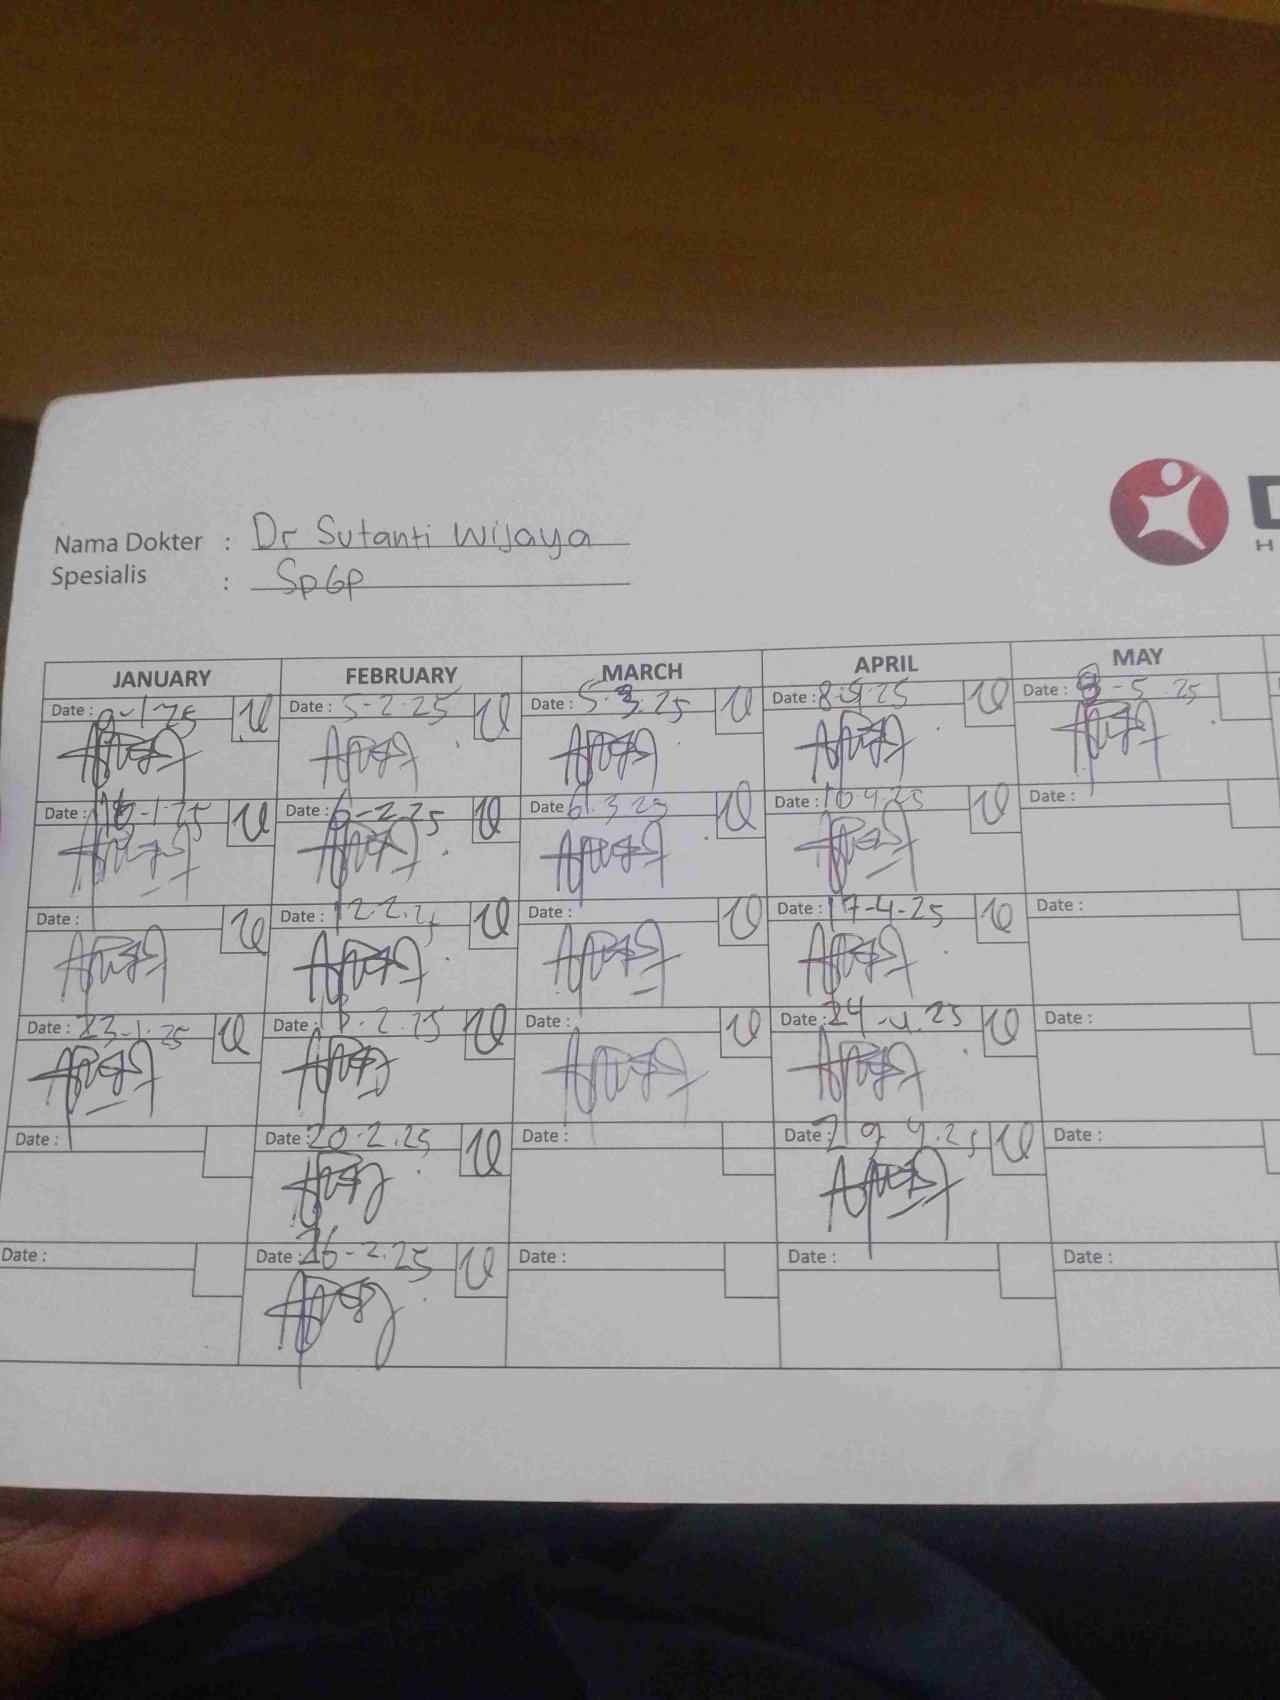 Nama Dokter : Dr Sutanti Wijaya
Spesialis : SpGp
D
H
JANUARY FEBRUARY MARCH APRIL MAY
Date : 9-1-25 Date : 5-2-25 Date : 5.3.25 Date : 8.4.25 Date : 8-5.25
Date : 16-1-25 Date : 6-2.25 Date : 6.3.25 Date : 10.4.25 Date :
Date : Date : 12.2.25 Date : Date : 17-4-25 Date :
Date : 23-1.25 Date : 13.2.25 Date : Date : 24-4.25 Date :
Date : Date : 20.2.25 Date : Date : 29.4.25 Date :
Date : Date : 26-2.25 Date : Date : Date :